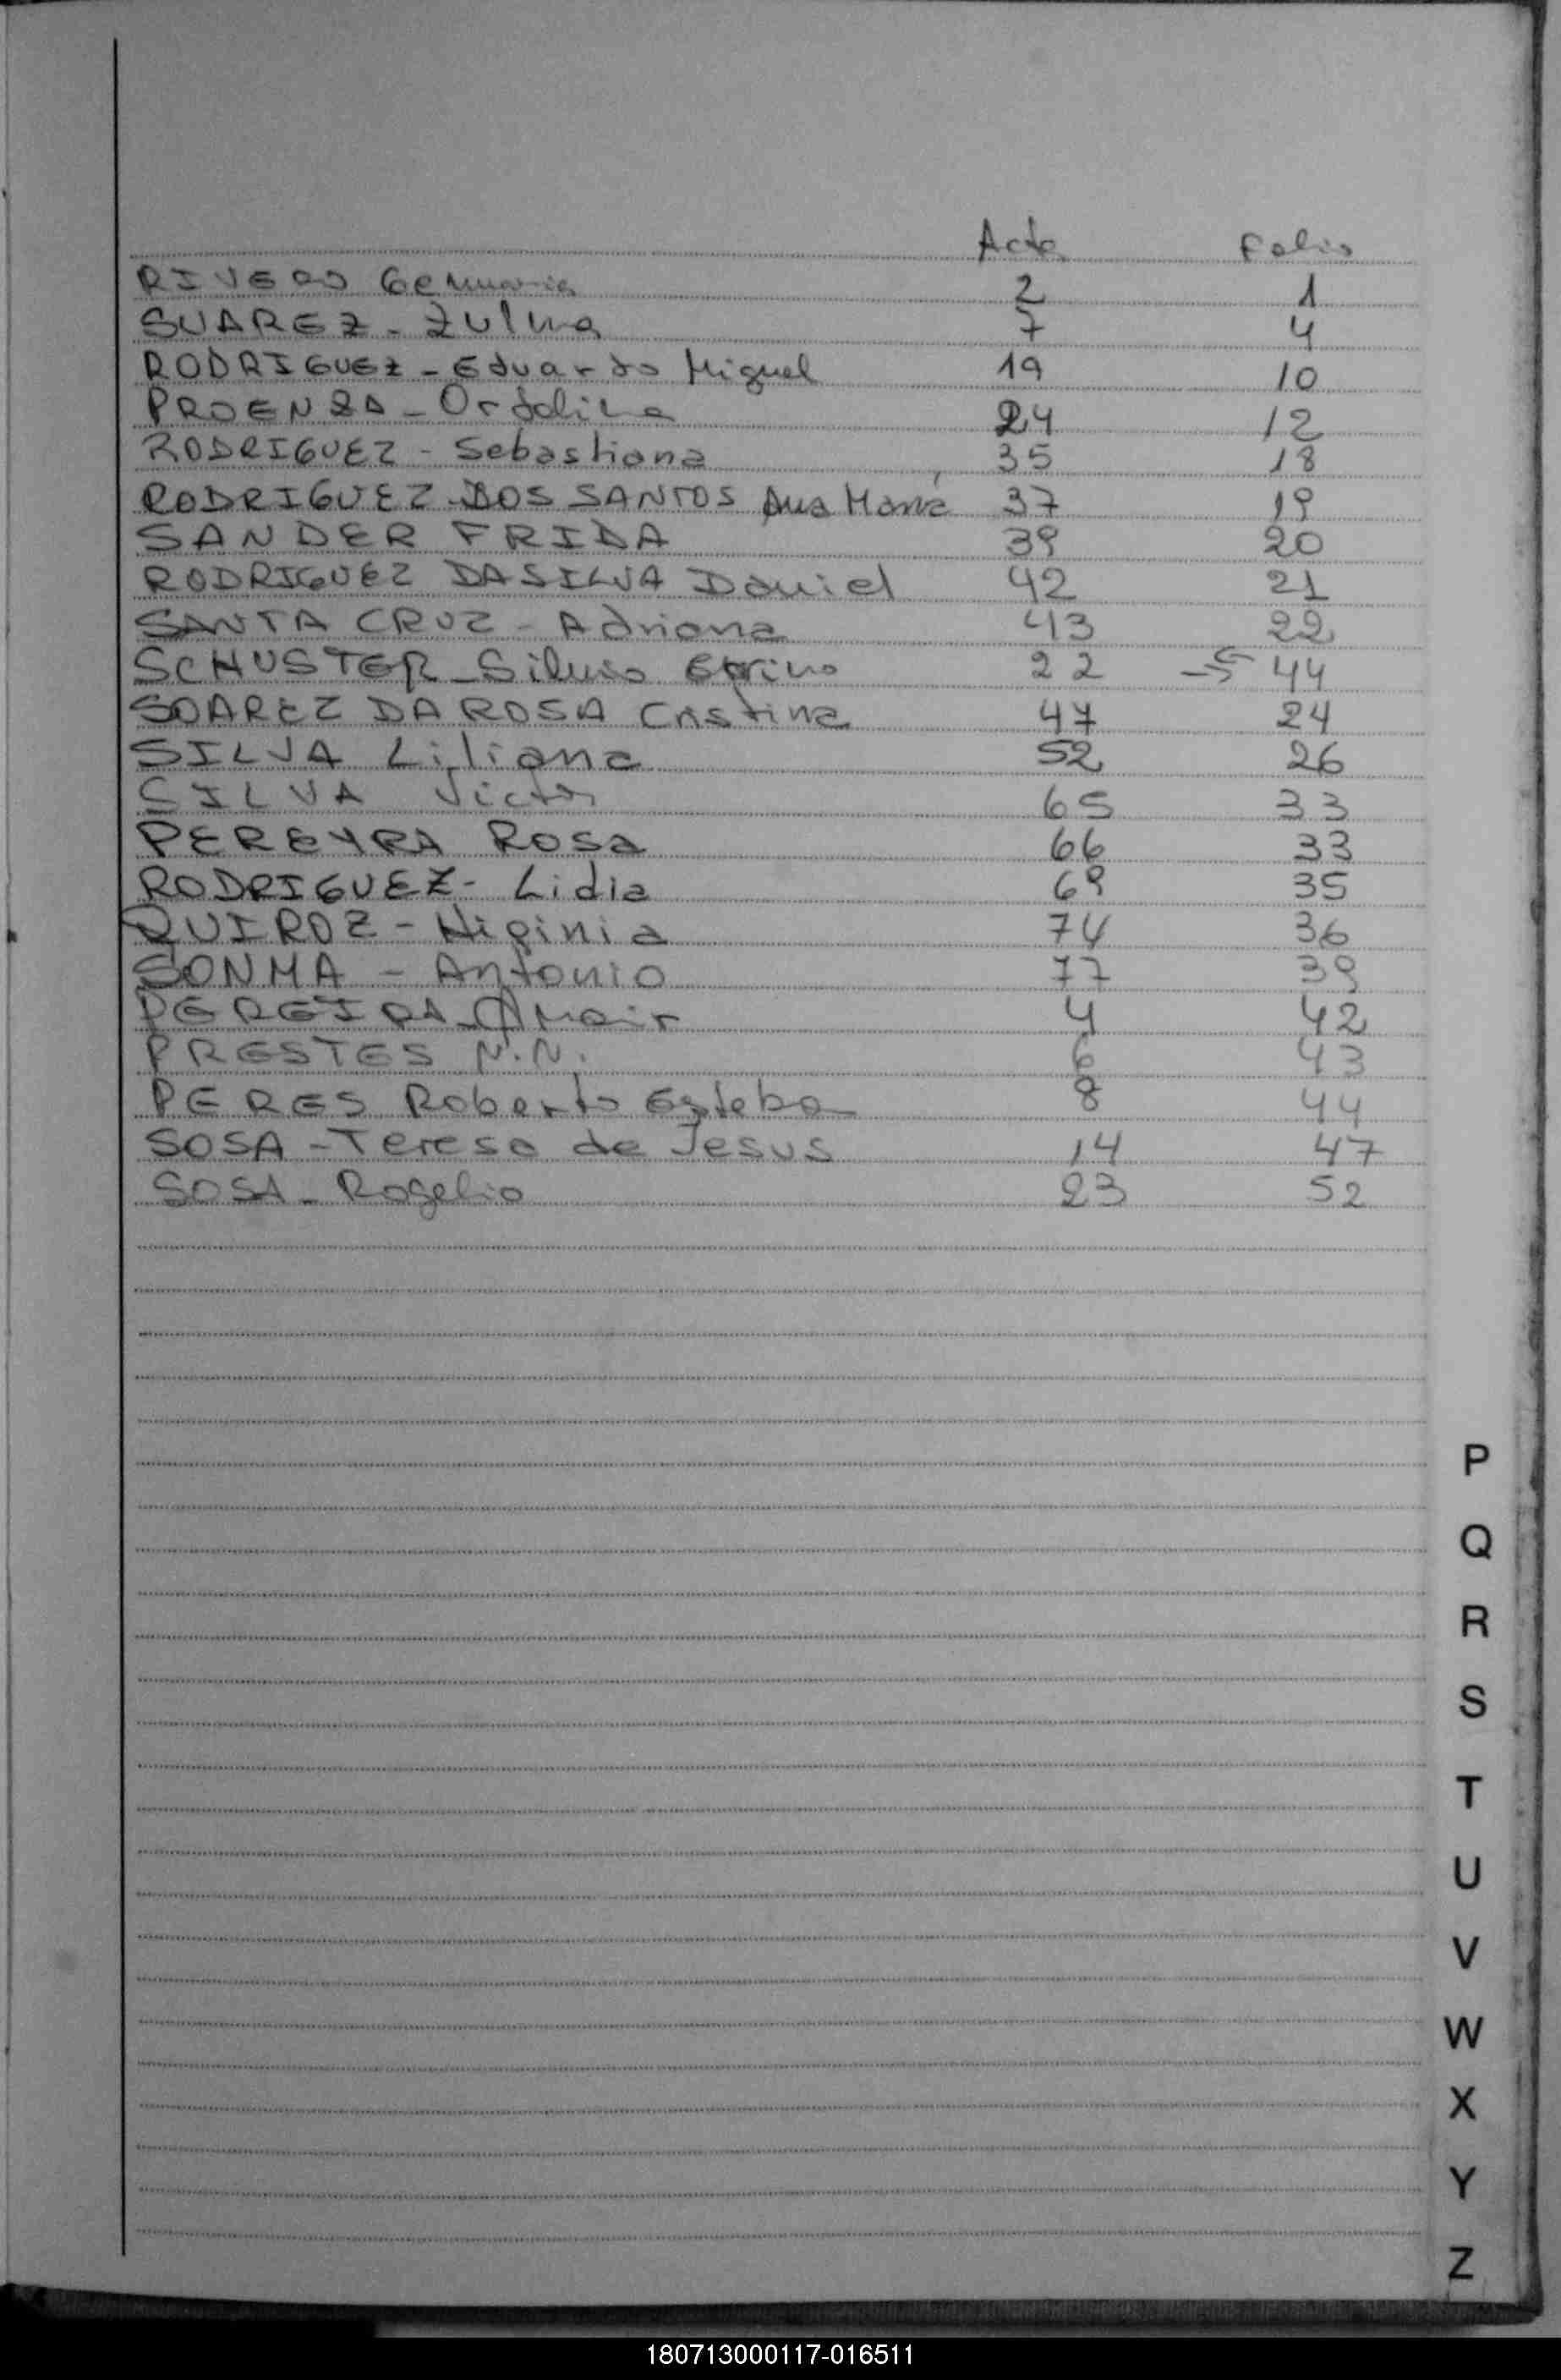 Acta Folio
RIVERO Gemuaria 2 1
SUAREZ - Zulma 7 4
RODRIGUEZ - Eduardo Miguel 19 10
PROENZA - Ordolina 24 12
RODRIGUEZ - Sebastiana 35 18
RODRIGUEZ DOS SANTOS Ana María 37 19
SANDER FRIDA 39 20
RODRIGUEZ DA SILVA Daniel 42 21
SANTA CRUZ - Adriana 43 22
SCHUSTER - Silvio 22 44
SOAREZ DA ROSA Cristina 47 24
SILVA Liliana 52 26
SILVA Victor 65 33
PEREYRA Rosa 66 33
RODRIGUEZ - Lidia 69 35
QUIROZ - Higinia 74 36
SONMA - Antonio 77 39
PEREIRA - 4 42
PRESTES N.N. 6 43
PERES Roberto Esteban 8 44
SOSA - Teresa de Jesus 14 47
SOSA - Rogelio 23 52
P
Q
R
S
T
U
V
W
X
Y
Z
180713000117-016511